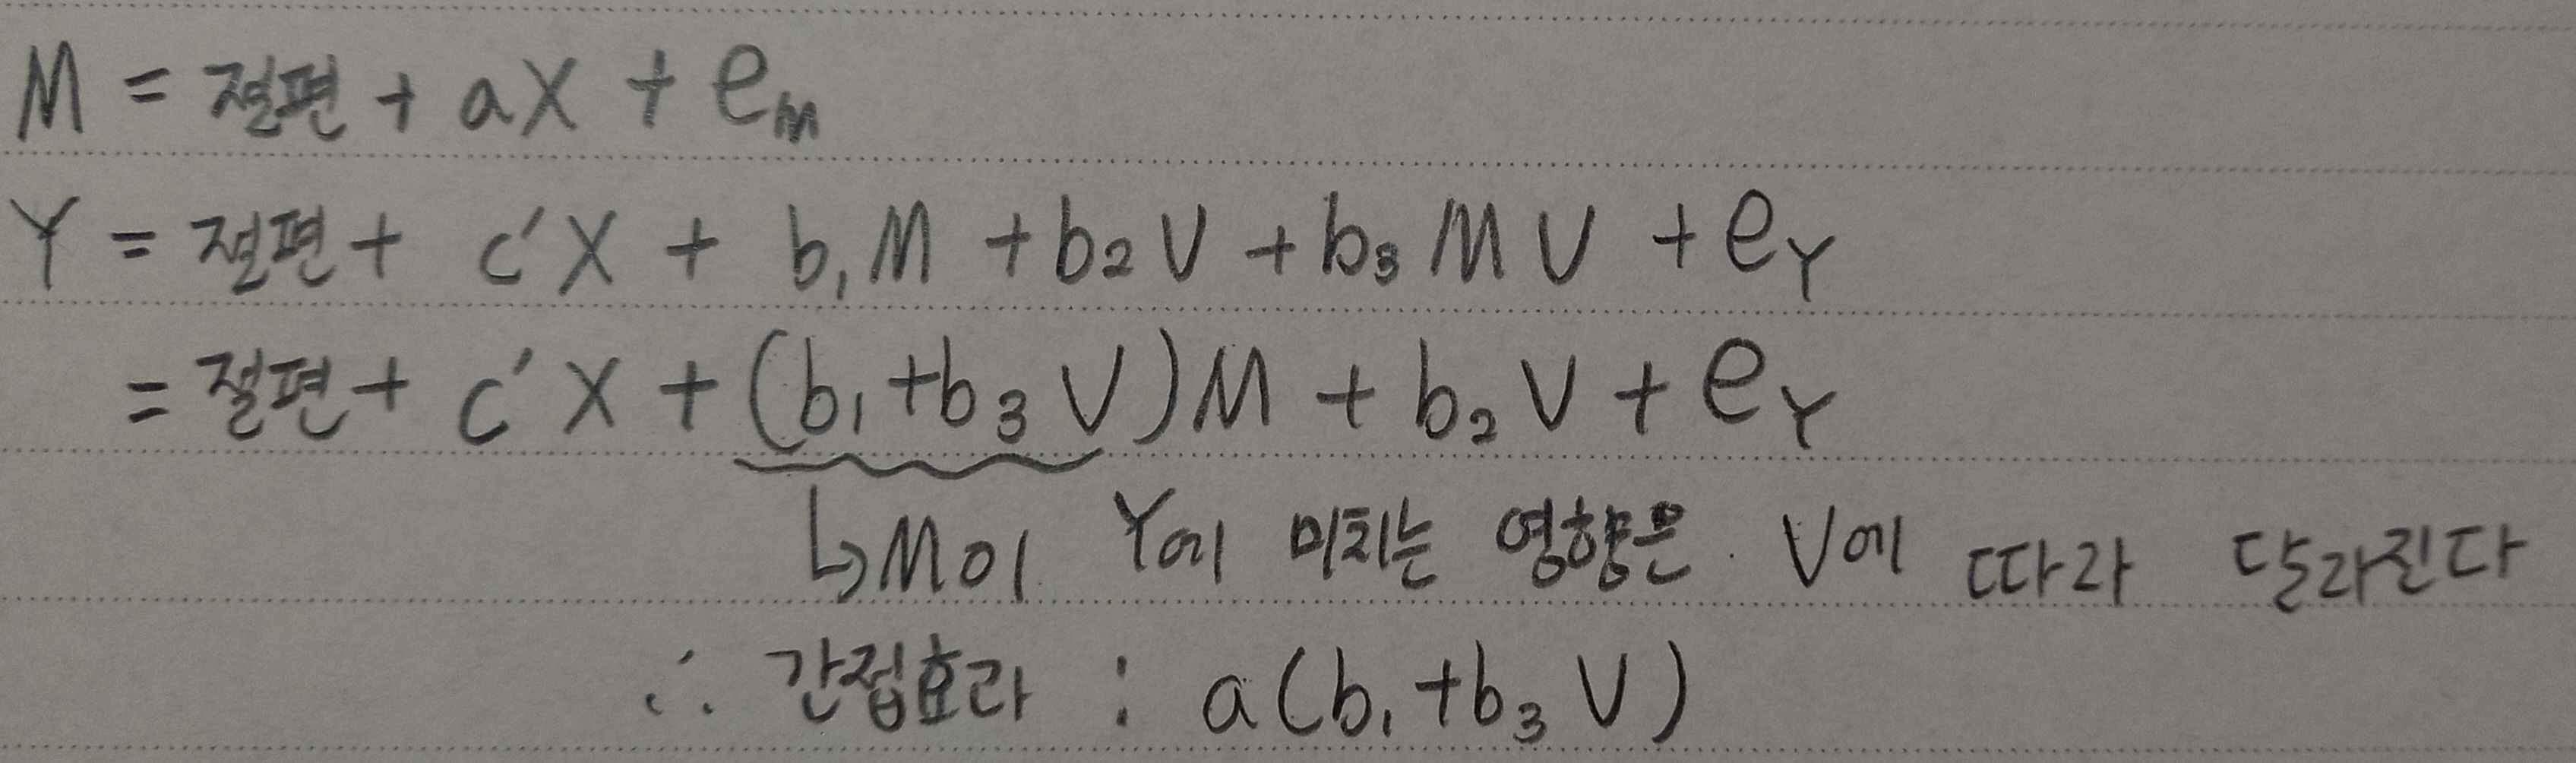 M = 절편 + aX + eₘ
Y = 절편 + c'X + b₁M + b₂V + b₃MV + e_Y
= 절편 + c'X + (b₁+b₃V)M + b₂V + e_Y
↳M이 Y에 미치는 영향은 V에 따라 달라진다
∴ 간접효과 : a(b₁+b₃V)